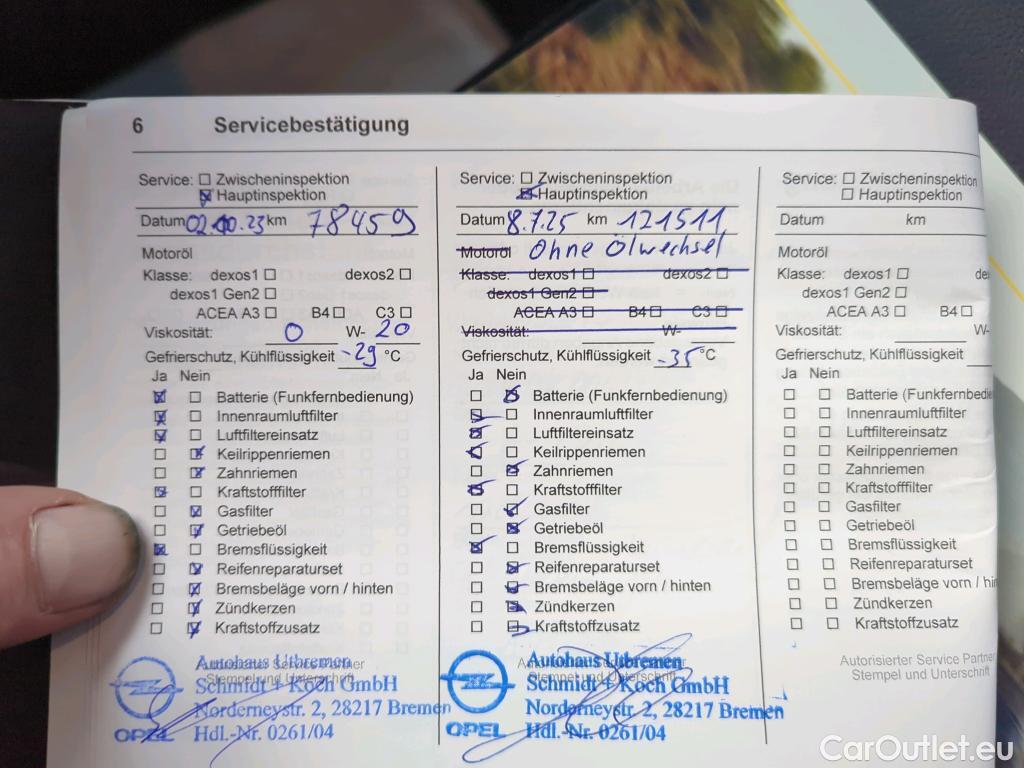 6 Servicebestätigung
Service: Zwischeninspektion
Hauptinspektion
Datum 02.10.23 km 78459
Motoröl
Klasse: dexos1 dexos2
dexos1 Gen2
ACEA A3 B4 C3
Viskosität: 0 W- 20
Gefrierschutz, Kühlflüssigkeit -29 °C
Ja Nein
Batterie (Funkfernbedienung)
Innenraumluftfilter
Luftfiltereinsatz
Keilrippenriemen
Zahnriemen
Kraftstofffilter
Gasfilter
Getriebeöl
Bremsflüssigkeit
Reifenreparaturset
Bremsbeläge vorn / hinten
Zündkerzen
Kraftstoffzusatz
Autorisierter Service Partner
Stempel und Unterschrift
Autohaus Utbremen
Schmidt + Koch GmbH
Norderneystr. 2, 28217 Bremen
OPEL Hdl.-Nr. 0261/04
Service: Zwischeninspektion
Hauptinspektion
Datum 8.7.25 km 121511
Motoröl Ohne Ölwechsel
Klasse: dexos1 dexos2
dexos1 Gen2
ACEA A3 B4 C3
Viskosität: W-
Gefrierschutz, Kühlflüssigkeit -35 °C
Ja Nein
Batterie (Funkfernbedienung)
Innenraumluftfilter
Luftfiltereinsatz
Keilrippenriemen
Zahnriemen
Kraftstofffilter
Gasfilter
Getriebeöl
Bremsflüssigkeit
Reifenreparaturset
Bremsbeläge vorn / hinten
Zündkerzen
Kraftstoffzusatz
Stempel und Unterschrift
Autohaus Utbremen
Schmidt + Koch GmbH
Norderneystr. 2, 28217 Bremen
OPEL Hdl.-Nr. 0261/04
Service: Zwischeninspektion
Hauptinspektion
Datum km
Motoröl
Klasse: dexos1 de
dexos1 Gen2
ACEA A3 B4
Viskosität: W-
Gefrierschutz, Kühlflüssigkeit
Ja Nein
Batterie (Funkfernbedie
Innenraumluftfilter
Luftfiltereinsatz
Keilrippenriemen
Zahnriemen
Kraftstofffilter
Gasfilter
Getriebeöl
Bremsflüssigkeit
Reifenreparaturset
Bremsbeläge vorn / hin
Zündkerzen
Kraftstoffzusatz
Autorisierter Service Partner
Stempel und Unterschrift
CarOutlet.eu